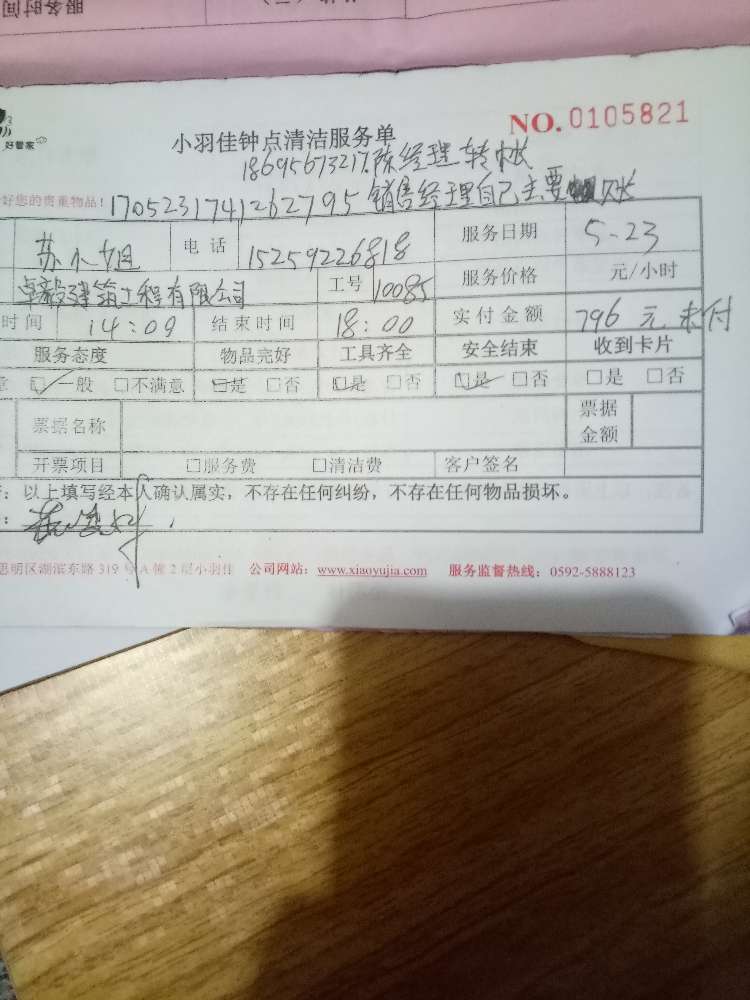 服务时间
好管家
小羽佳钟点清洁服务单
NO. 0105821
18695673217.陈经理转帐
好您的贵重物品！170523174126 2795 销售经理自己主要 欠账
苏小姐 电话 15259226818 服务日期 5-23
卓毅建筑工程有限公司 工号 10085 服务价格 元/小时
时间 14:09 结束时间 18:00 实付金额 796 元 未付
服务态度 物品完好 工具齐全 安全结束 收到卡片
意 ☑一般 □不满意 ☑是 □否 ☑是 □否 ☑是 □否 □是 □否
票据名称 票据金额
开票项目 □服务费 □清洁费 客户签名
：以上填写经本人确认属实，不存在任何纠纷，不存在任何物品损坏。
思明区湖滨东路 319 号 A 幢 2 层小羽佳 公司网站：www.xiaoyujia.com 服务监督热线：0592-5888123